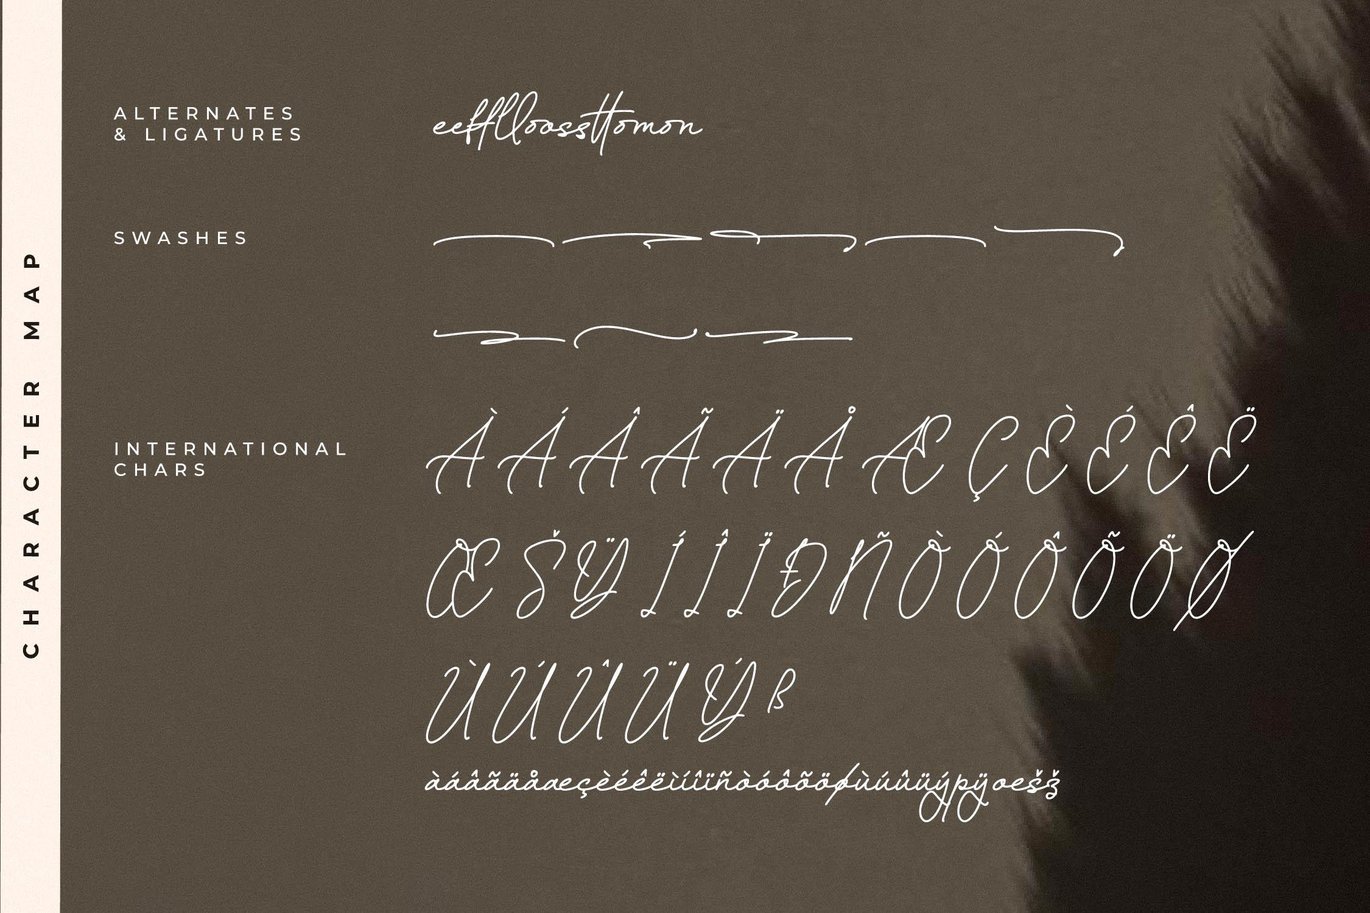 CHARACTER MAP
ALTERNATES
& LIGATURES
eefflloossttomon
SWASHES
INTERNATIONAL
CHARS
ÀÁÂÃÄÅÆÇÈÉÊË
ŒŠŸÍÎÏÐÑÒÓÔÕÖØ
ÙÚÛÜÝß
àáâãäåæçèéêëìíîïñòóôõöøùúûüýþÿœšž